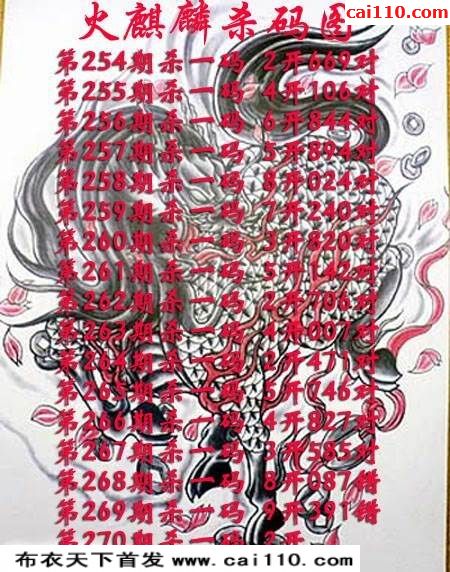 cai110.com
火麒麟杀码图
第254期杀一码 2开669对
第255期杀一码 4开106对
第256期杀一码 6开844对
第257期杀一码 5开894对
第258期杀一码 8开024对
第259期杀一码 7开240对
第260期杀一码 3开820对
第261期杀一码 5开142对
第262期杀一码 2开706对
第263期杀一码 4开007对
第264期杀一码 2开471对
第265期杀一码 5开746对
第266期杀一码 4开827对
第267期杀一码 3开585对
第268期杀一码 8开087错
第269期杀一码 9开391错
第270期杀一码 2开
布衣天下首发 www.cai110.com